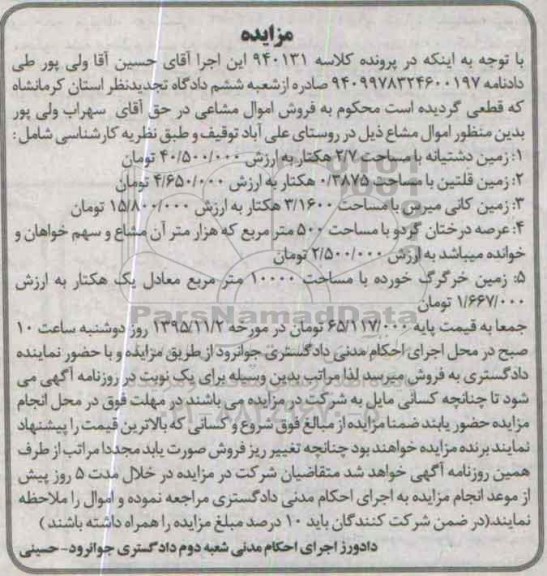 مزایده
با توجه به اینکه در پرونده کلاسه ۹۴۰۱۳۱ این اجرا آقای حسین آقا ولی پور طی
دادنامه ۹۴۰۹۹۷۸۳۲۴۶۰۰۱۹۷ صادره ازشعبه ششم دادگاه تجدیدنظر استان کرمانشاه
که قطعی گردیده است محکوم به فروش اموال مشاعی در حق آقای سهراب ولی پور
بدین منظور اموال مشاع ذیل در روستای علی آباد توقیف و طبق نظریه کارشناسی شامل:
۱: زمین دشتیانه با مساحت ۲/۷ هکتار به ارزش ۴۰/۵۰۰/۰۰۰ تومان
۲: زمین قلتین با مساحت ۰/۳۸۷۵ هکتار به ارزش ۴/۶۵۰/۰۰۰ تومان
۳: زمین کانی میرین با مساحت ۳/۱۶۰۰ هکتار به ارزش ۱۵/۸۰۰/۰۰۰ تومان
۴: عرصه درختان گردو با مساحت ۵۰۰ متر مربع که هزار متر آن مشاع و سهم خواهان و
خوانده میباشد به ارزش ۲/۵۰۰/۰۰۰ تومان
۵: زمین خرگرگ خورده با مساحت ۱۰۰۰۰ متر مربع معادل یک هکتار به ارزش
۱/۶۶۷/۰۰۰ تومان
جمعا به قیمت پایه ۶۵/۱۱۷/۰۰۰ تومان در مورخه ۱۳۹۵/۱۱/۲ روز دوشنبه ساعت ۱۰
صبح در محل اجرای احکام مدنی دادگستری جوانرود از طریق مزایده و با حضور نماینده
دادگستری به فروش میرسد لذا مراتب بدین وسیله برای یک نوبت در روزنامه آگهی می
شود تا چنانچه کسانی مایل به شرکت در مزایده می باشند در مهلت فوق در محل انجام
مزایده حضور یابند ضمنا مزایده از مبالغ فوق شروع و کسانی که بالاترین قیمت را پیشنهاد
نمایند برنده مزایده خواهند بود چنانچه تغییر ریز فروش صورت یابد مجددا مراتب از طرف
همین روزنامه آگهی خواهد شد متقاضیان شرکت در مزایده در خلال مدت ۵ روز پیش
از موعد انجام مزایده به اجرای احکام مدنی دادگستری مراجعه نموده و اموال را ملاحظه
نمایند(در ضمن شرکت کنندگان باید ۱۰ درصد مبلغ مزایده را همراه داشته باشند )
دادورز اجرای احکام مدنی شعبه دوم دادگستری جوانرود- حسینی
ParsNamadData